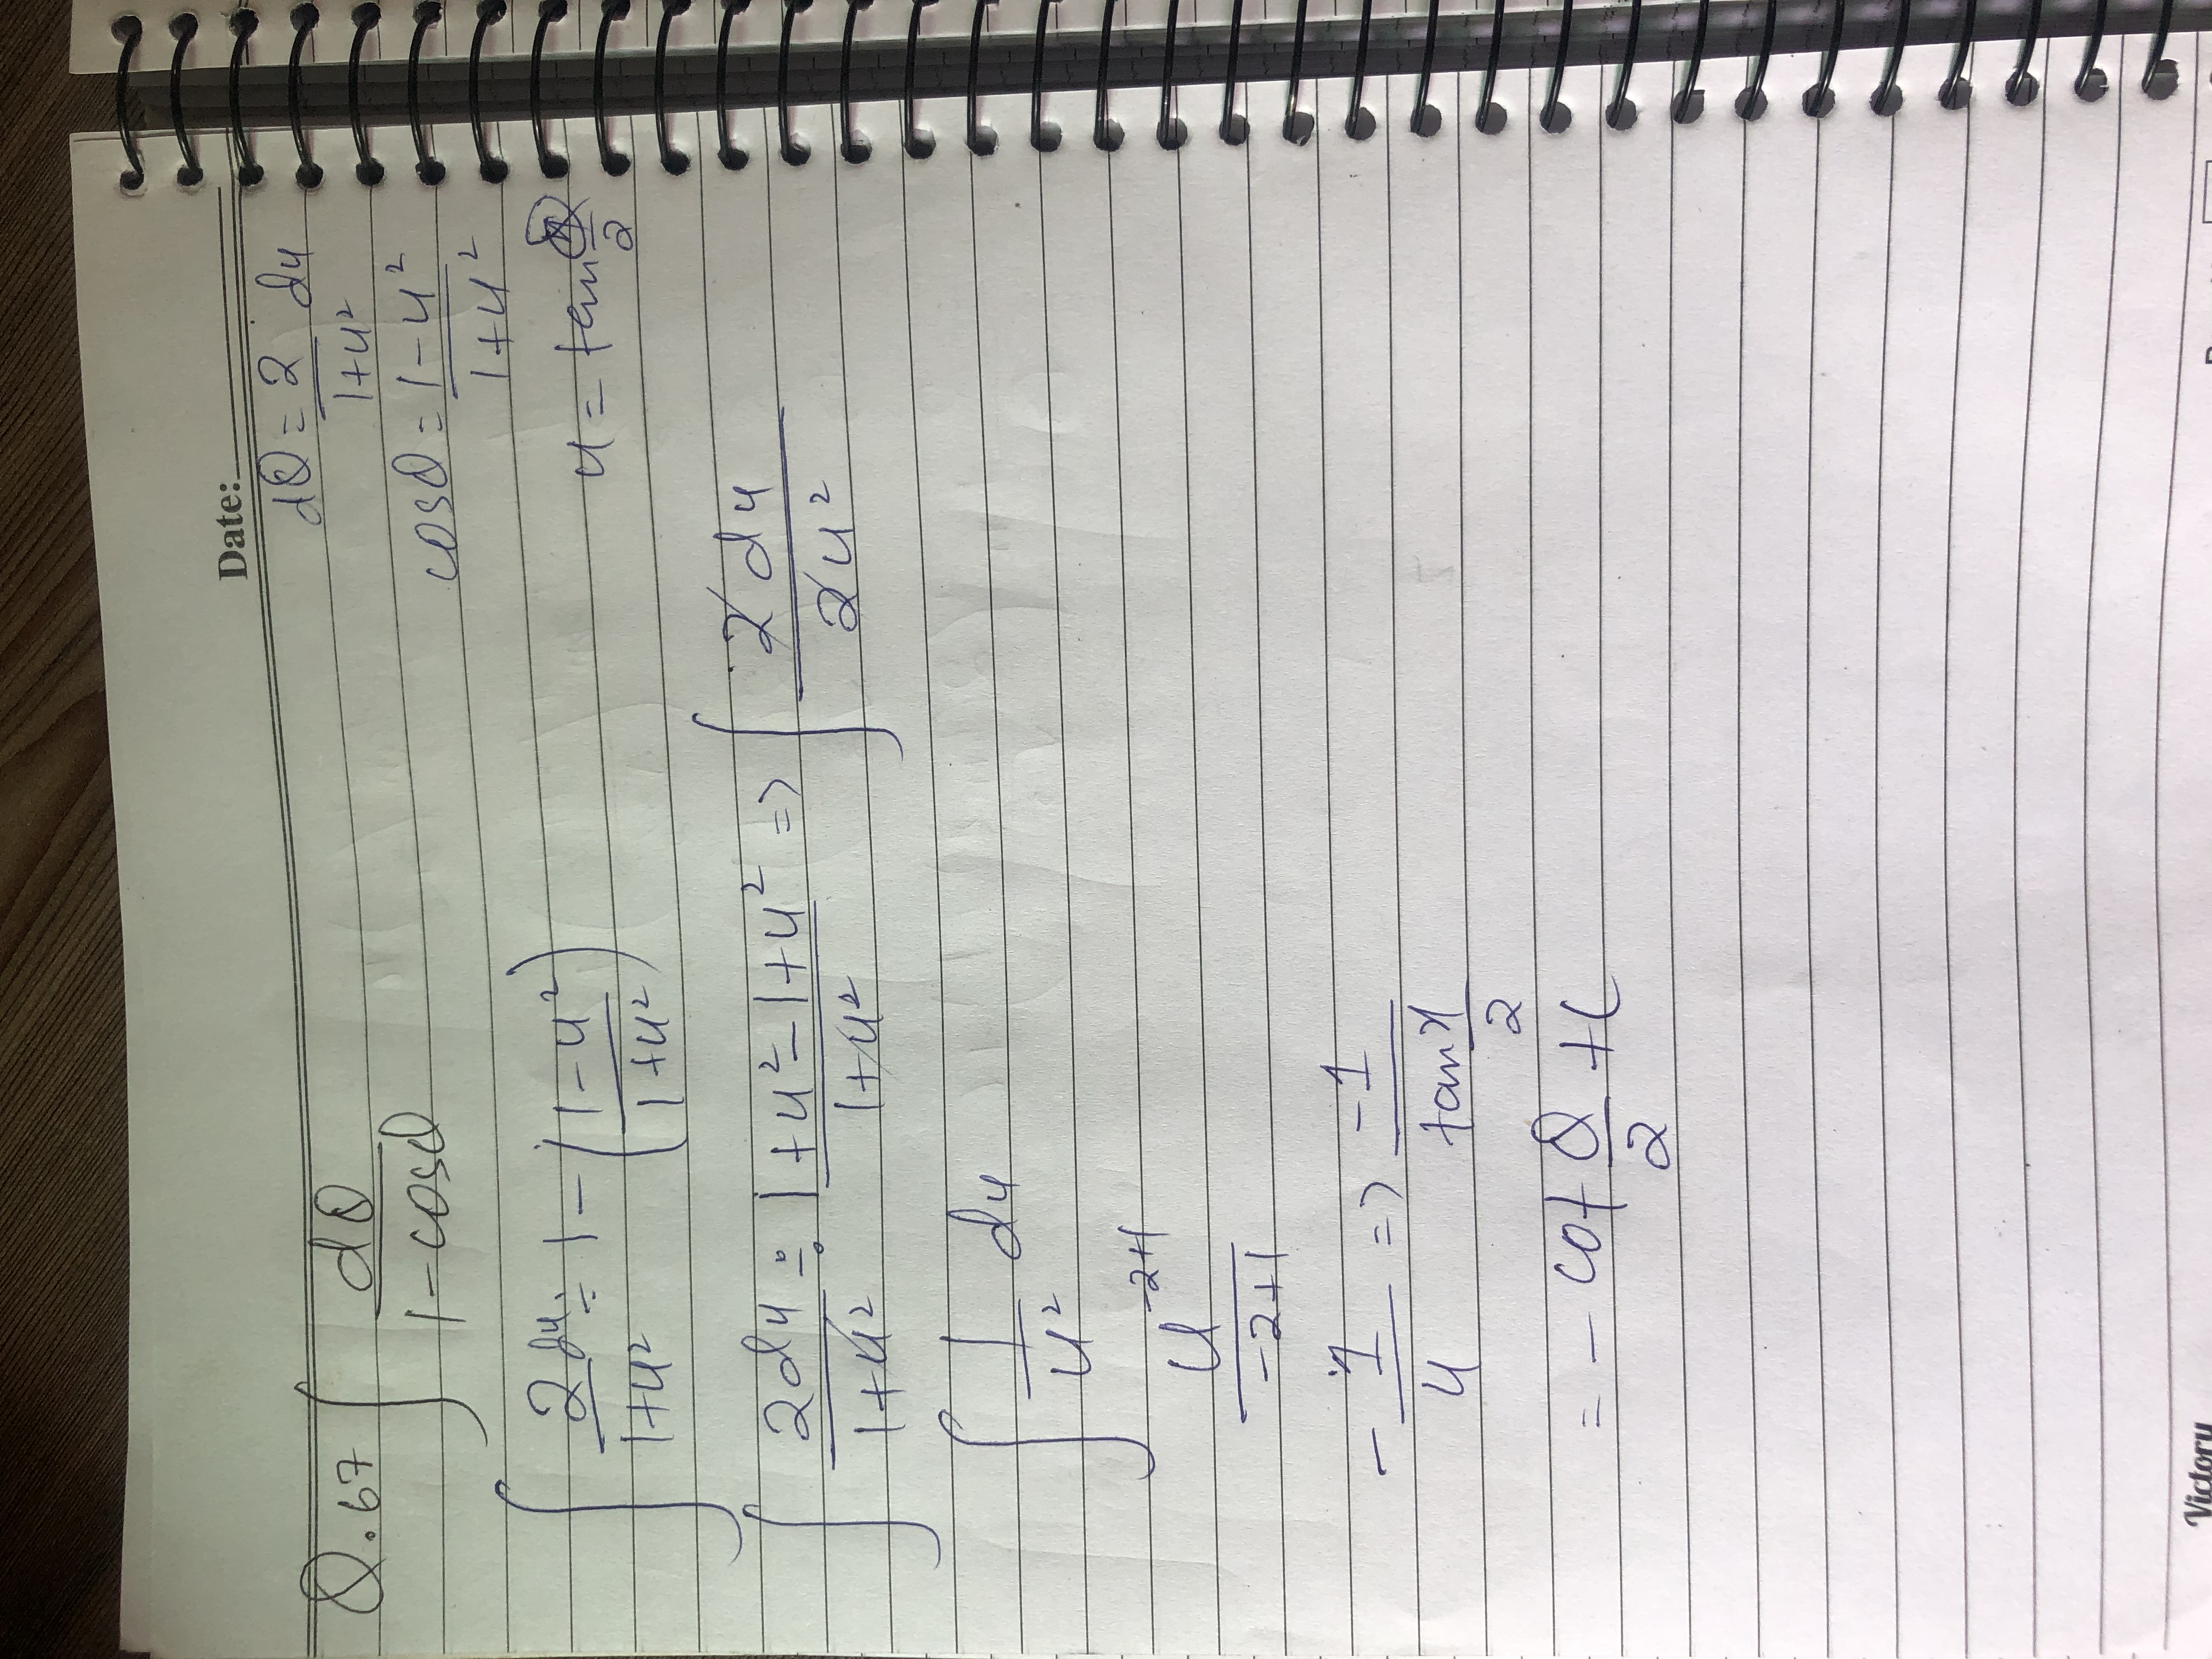 Date:
Q.67 ∫ dθ / 1 - cosθ
dθ = 2 / 1+u² du
cosθ = 1-u² / 1+u²
u = tan θ/2
∫ 2 du / 1+u² ÷ 1 - (1-u² / 1+u²)
∫ 2du / 1+u² ÷ 1+u²-1+u² / 1+u² => ∫ 2 du / 2u²
∫ 1 / u² du
u⁻²⁺¹ / -2+1
- 1 / u => -1 / tan x/2
= - cot θ/2 + C
Victory